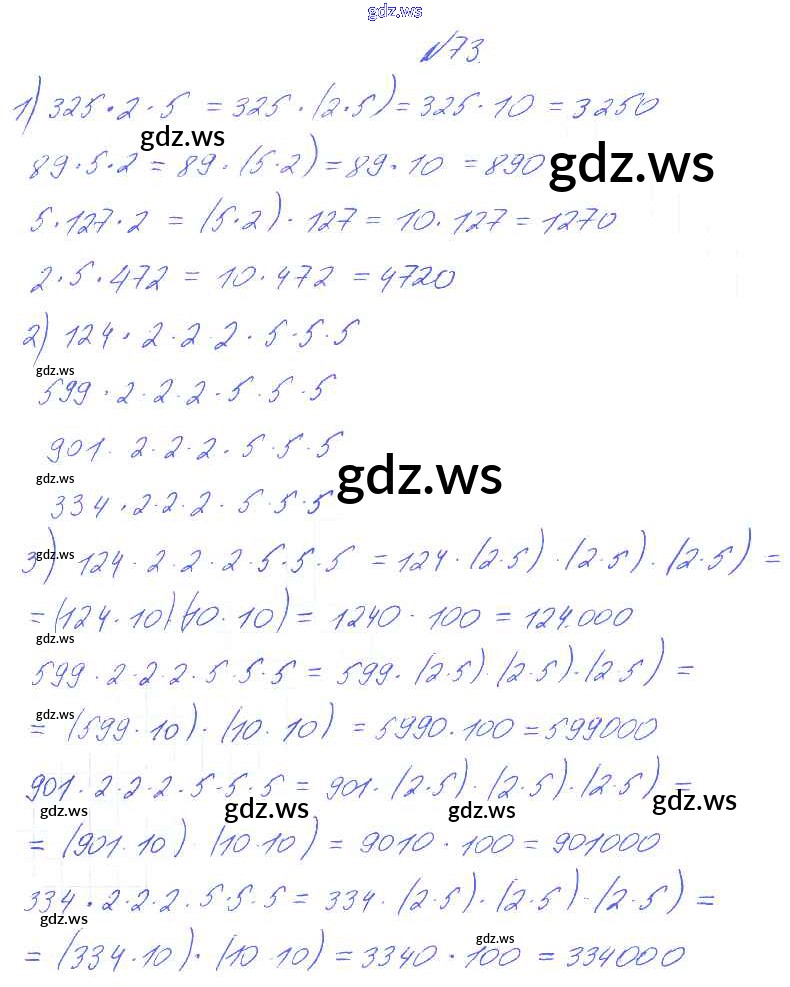 gdz.ws
№73.
1) 325·2·5 = 325·(2·5) = 325·10 = 3250
gdz.ws
89·5·2 = 89·(5·2) = 89·10 = 890
gdz.ws
5·127·2 = (5·2)·127 = 10·127 = 1270
2·5·472 = 10·472 = 4720
2) 124·2·2·2·5·5·5
gdz.ws
599·2·2·2·5·5·5
901·2·2·2·5·5·5
gdz.ws
gdz.ws
334·2·2·2·5·5·5
gdz.ws
3) 124·2·2·2·5·5·5 = 124·(2·5)·(2·5)·(2·5) =
= (124·10)(10·10) = 1240·100 = 124.000
gdz.ws
599·2·2·2·5·5·5 = 599·(2·5)·(2·5)·(2·5) =
gdz.ws
= (599·10)·(10·10) = 5990·100 = 599000
901·2·2·2·5·5·5 = 901·(2·5)·(2·5)·(2·5) =
gdz.ws gdz.ws gdz.ws gdz.ws
= (901·10)·(10·10) = 9010·100 = 901000
334·2·2·2·5·5·5 = 334·(2·5)·(2·5)·(2·5) =
gdz.ws
gdz.ws
= (334·10)·(10·10) = 3340·100 = 334000